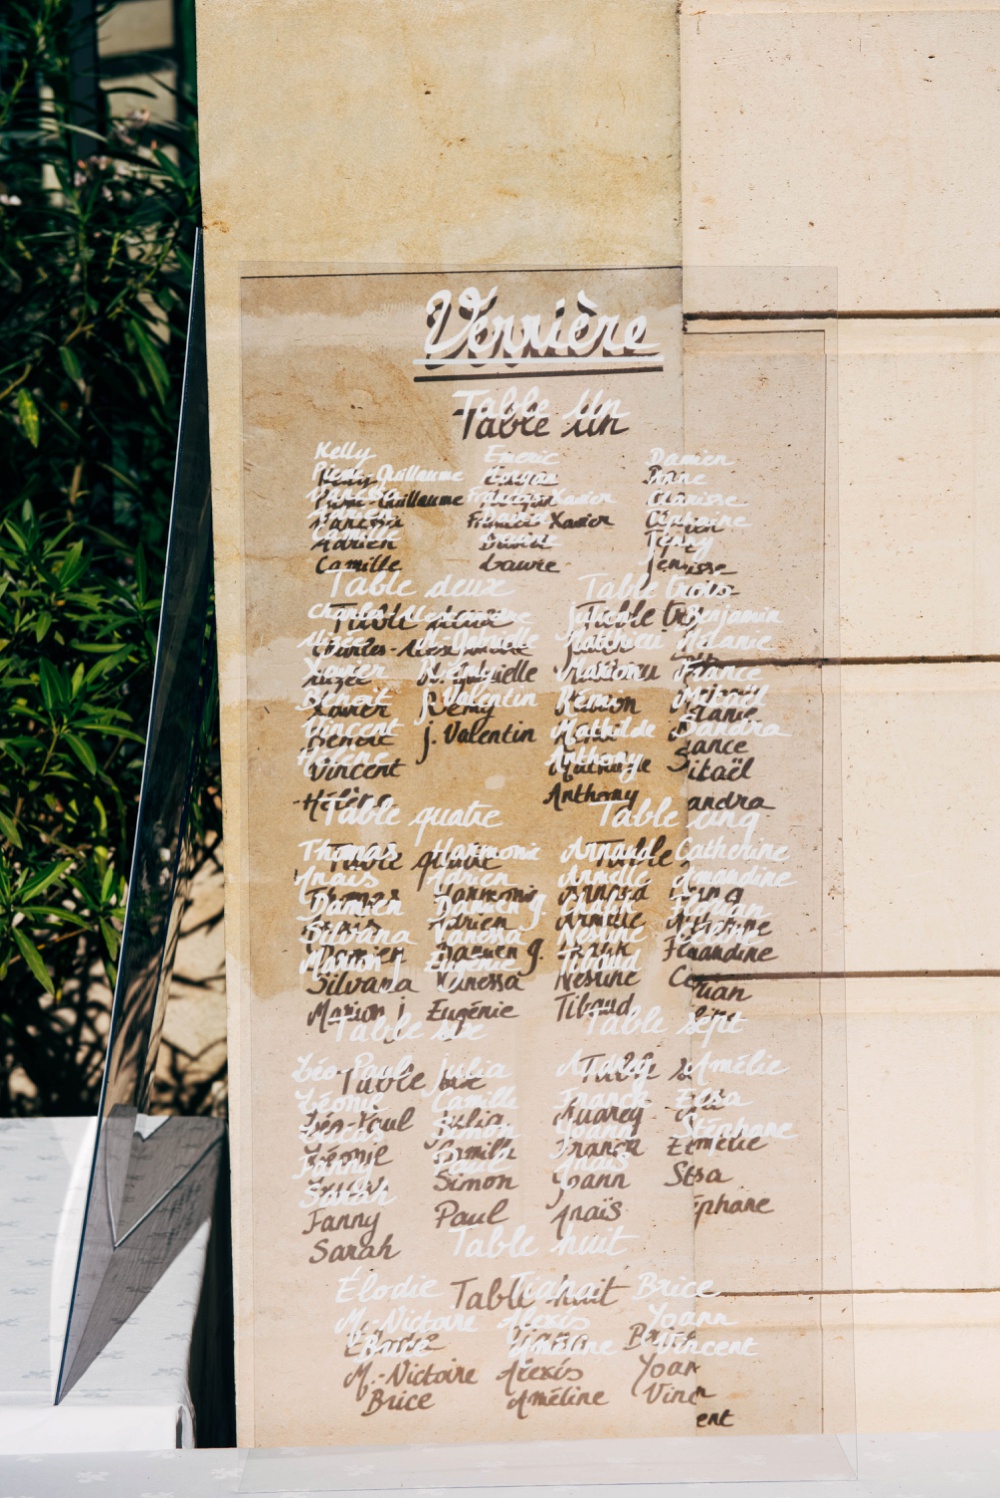 Verrière
Table Un
Kelly Emeric Damien
Pierre-Guillaume Morgan
Vanessa François-Xavier Clarisse
Adrien David Tiphaine
Camille Laure Jenny
Table deux Table trois
Charles-Alexandre Benjamin
Alizée M.-Gabrielle Matthieu Mélanie
Xavier Rémy France
Benoit J. Valentin Rémion Mikaël
Vincent Mathilde Sandra
Hélène Anthony
Table quatre Table cinq
Thomas Harmonie Arnaud Catherine
Anaïs Adrien Armelle Amandine
Damien Damien G. Florian
Silvana Vanessa Nesrine
Marion J Eugénie Tibaud
Table six Table sept
Léo-Paul Julia Audrey Amélie
Léonie Camille Franck Elsa
Lucas Simon Yoann Stéphane
Fanny Paul Anaïs
Sarah
Table huit
Élodie Brice
M.-Victoire Alexis Yoann
Brice Améline Vincent